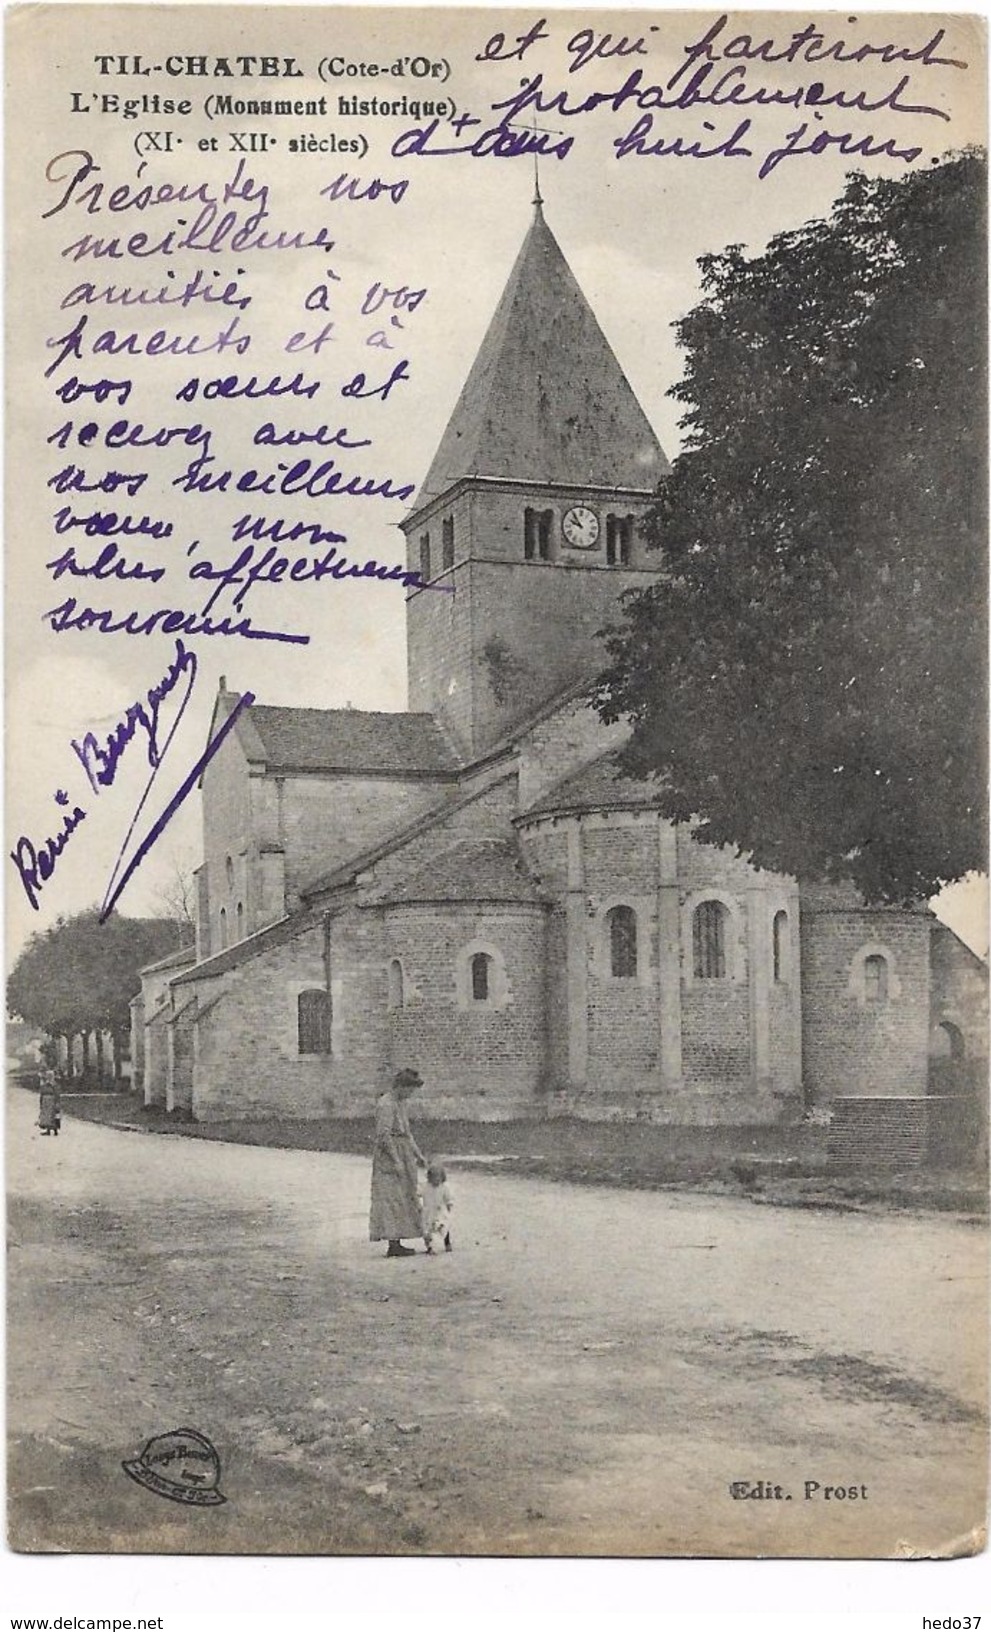 TIL-CHATEL (Cote-d'Or)
L'Eglise (Monument historique)
(XI· et XII· siècles)
et qui partiront
probablement
d+ans huit jours.
Présentez nos
meilleures
amitiés à vos
parents et à
vos sœurs et
recevez avec
nos meilleurs
vœux, mon
plus affectueux
souvenir
Renée
Edit. Prost
www.delcampe.net
hedo37